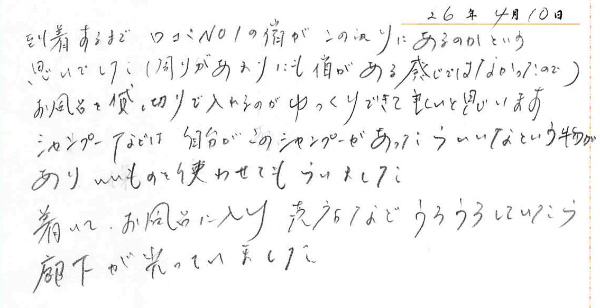 26年4月10日
到着するまで 口コミNO1の宿がこの辺りにあるのかという
思いでした（周りがあまりにも宿がある感じではなかったので）
お風呂を貸し切りで入れるのがゆっくりできて良いと思います
シャンプーなどは 自分がこのシャンプーがあったらいいなという物が
あり いいものを使わせてもらいました
着いて、お風呂に入り 売店などうろうろしていたら
廊下が光っていました